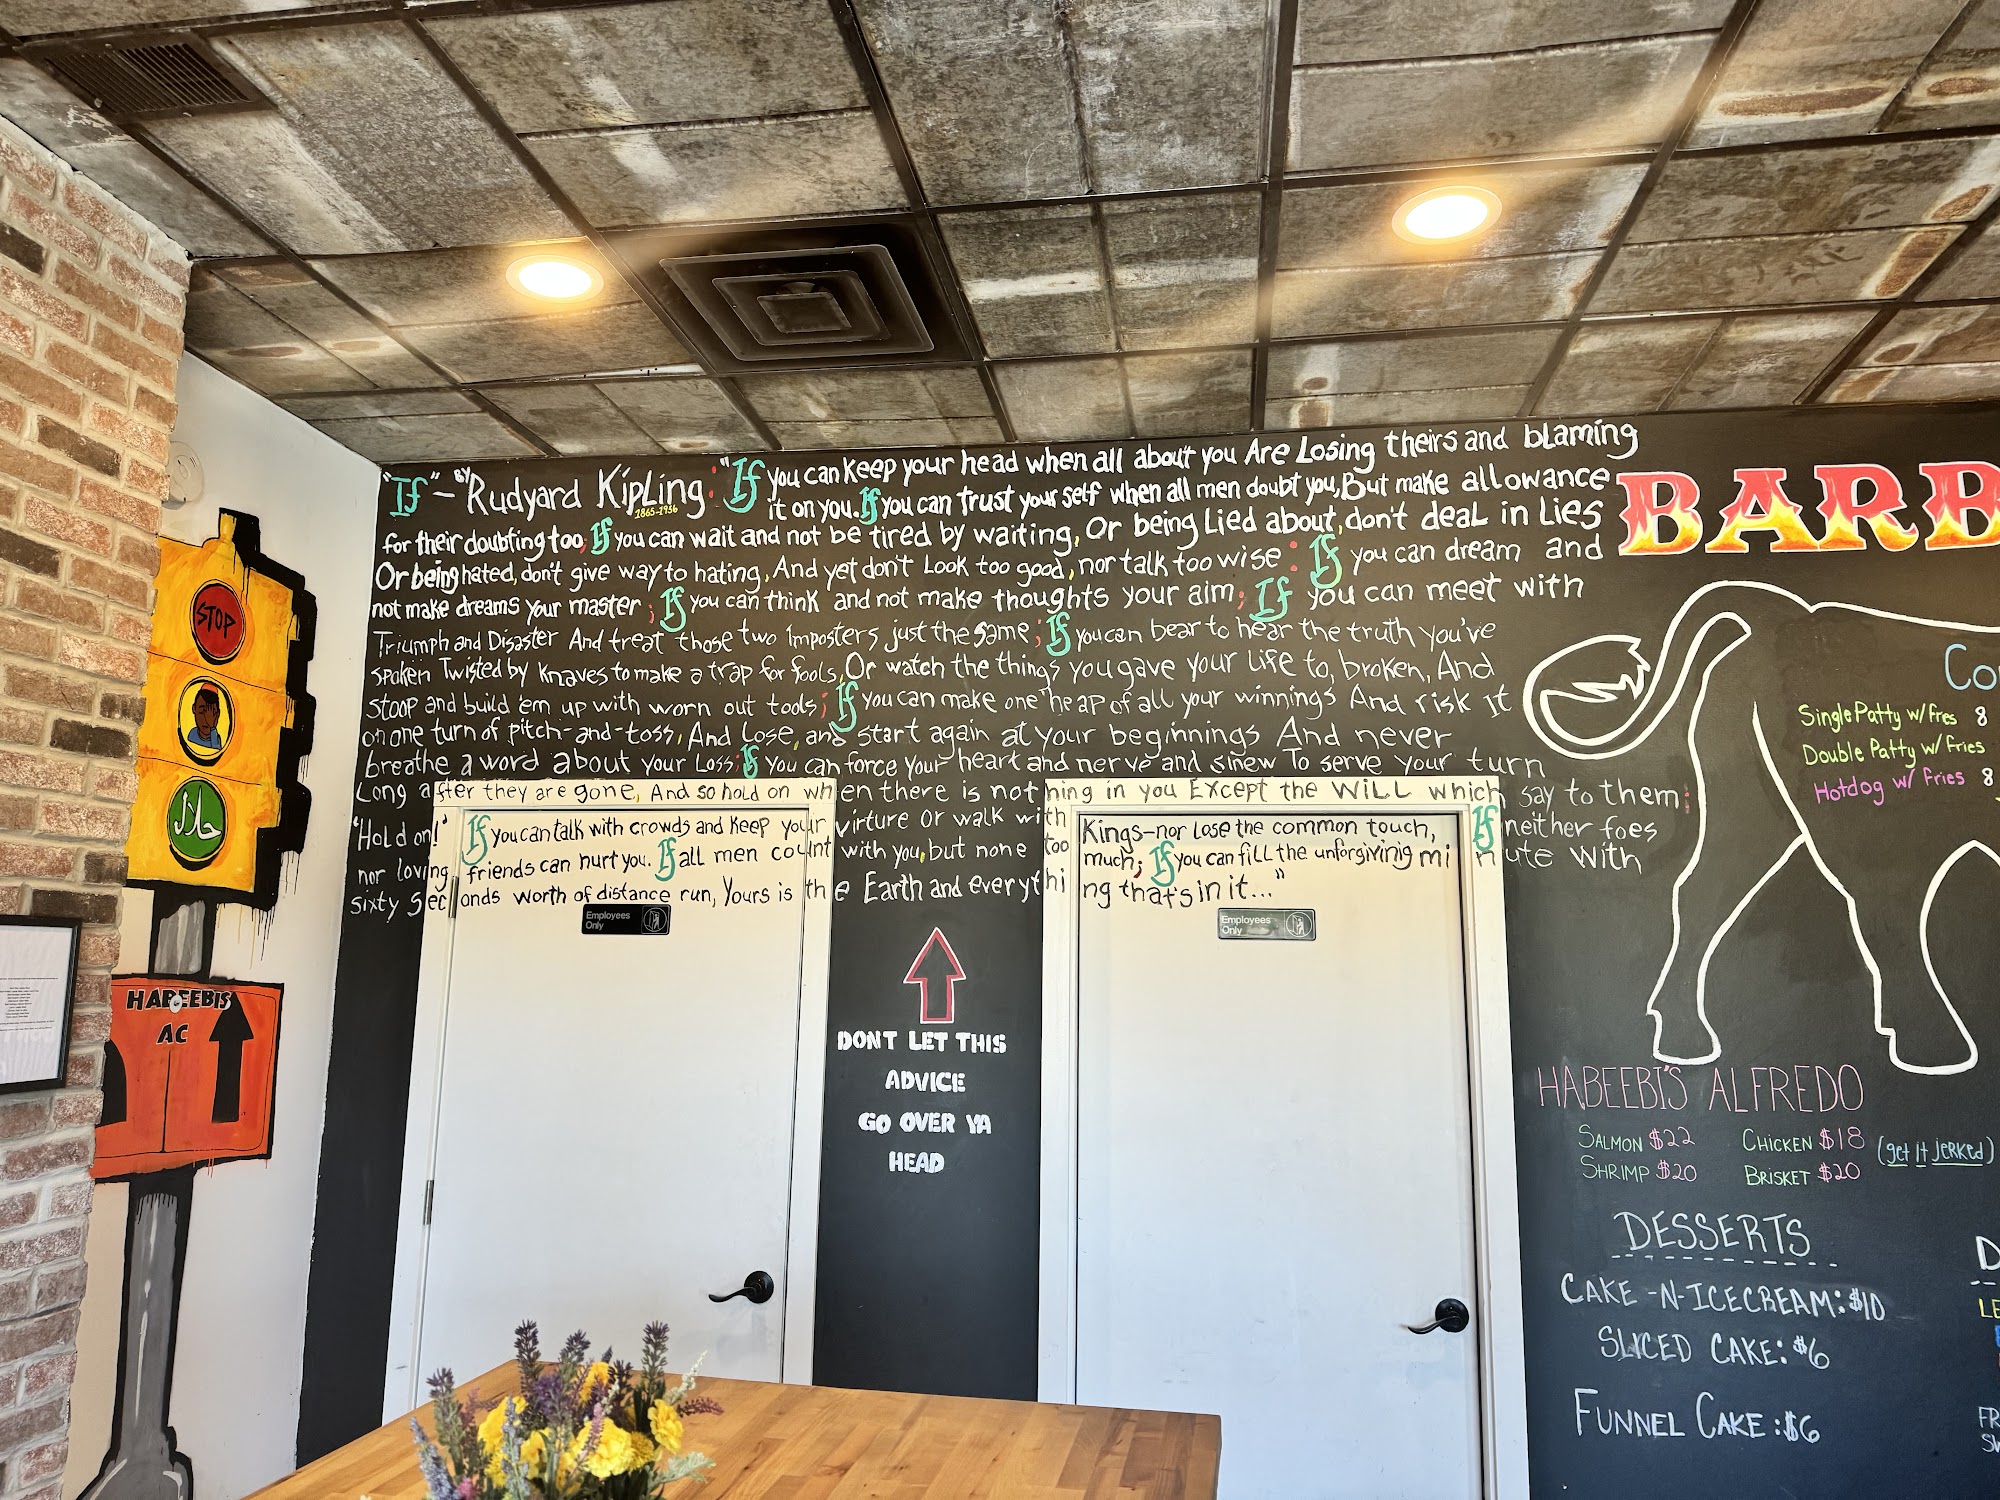 "If" - BY Rudyard Kipling: "If you can keep your head when all about you Are Losing theirs and blaming
1865-1936
it on you. If you can trust yourself when all men doubt you, But make allowance
for their doubting too; If you can wait and not be tired by waiting, Or being Lied about, don't deal in Lies
Or being hated, don't give way to hating, And yet don't Look too good, nor talk too wise: If you can dream and
not make dreams your master; If you can think and not make thoughts your aim; If you can meet with
Triumph and Disaster And treat those two Imposters just the same; If you can bear to hear the truth you've
spoken Twisted by Knaves to make a trap for fools, Or watch the things you gave your life to, broken, And
stoop and build 'em up with worn out tools; If you can make one heap of all your winnings And risk It
on one turn of pitch-and-toss, And Lose, and start again at your beginnings And never
breathe a word about your Loss; If you can force your heart and nerve and sinew To serve your turn
Long after they are gone, And so hold on when there is nothing in you Except the WiLL which say to them:
'Hold on!' If you can talk with crowds and keep your virture Or walk with Kings-nor lose the common touch, If neither foes
nor loving friends can hurt you. If all men count with you, but none too much; If you can fill the unforgivinig minute with
sixty seconds worth of distance run, Yours is the Earth and everything that's in it..."
Employees
Only
Employees
Only
DONT LET THIS
ADVICE
GO OVER YA
HEAD
STOP
حلال
HABEEBIS
AC
BARB
Co
Single Patty w/ fries 8
Double Patty w/ fries
Hotdog w/ fries 8
HABEEBI'S ALFREDO
SALMON $22 CHICKEN $18 (get it jerked)
SHRIMP $20 BRISKET $20
DESSERTS
CAKE-N-ICECREAM: $10
SLICED CAKE: $6
FUNNEL CAKE: $6
D
LE
FR
SW